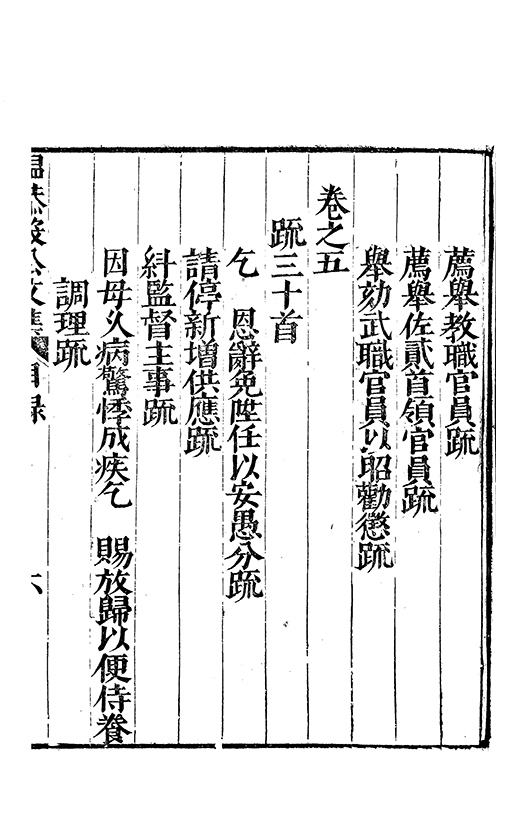 薦舉教職官員疏
薦舉佐貳首領官員疏
舉効武職官員以昭勸懲疏
卷之五
疏三十首
乞　恩辭免陞任以安愚分疏
請停新增供應疏
糾監督主事疏
因母久病驚悸成疾乞　賜放歸以便侍養
調理疏
溫恭毅公文集　目錄　六